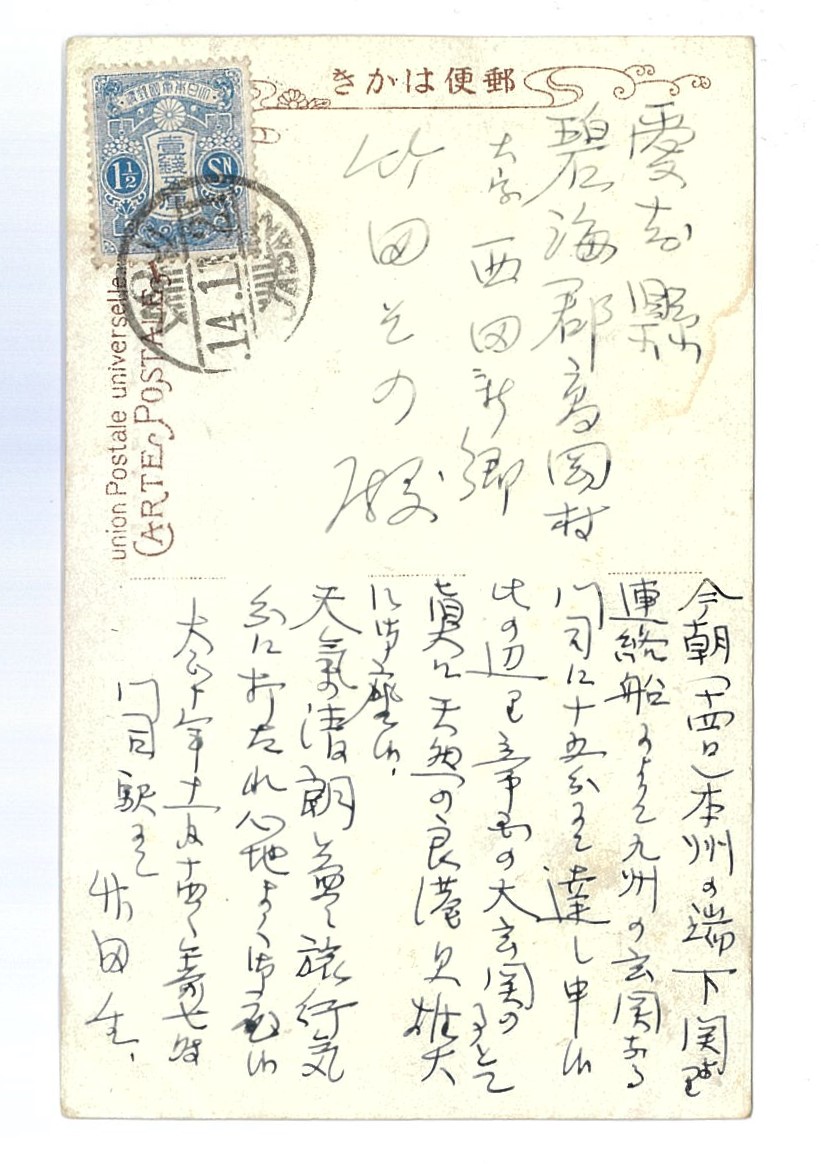 きかは便郵
大日本帝國郵便
壹錢五厘
1½
SN
14.11
union Postale universelle
CARTE POSTALE
愛知縣
碧海郡高岡村
大字西田新郷
竹田その殿
今朝(十四日)本州の端下関
連絡船によって九州の玄関なる
門司に十五分にて達し申候
此の辺
大玄関の
眞に天然の良港
雄大
に御座候、
天氣清朗
旅行気
分に打たれ心地よく
大正十年十一月十四日
門司駅にて
竹田生、